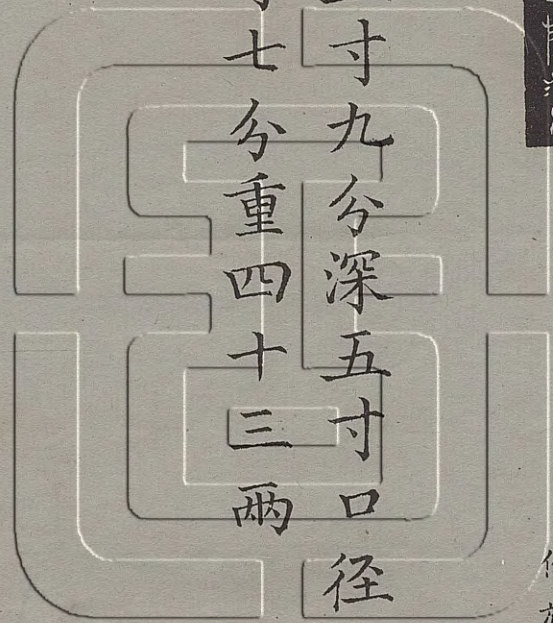 寸九分深五寸口径
七分重四十三兩